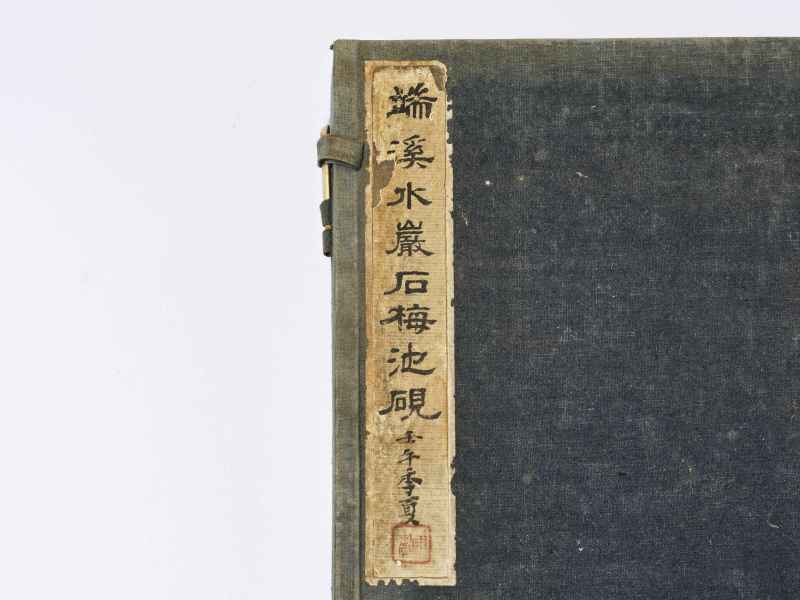 端溪水巖石梅池硯
壬午季夏